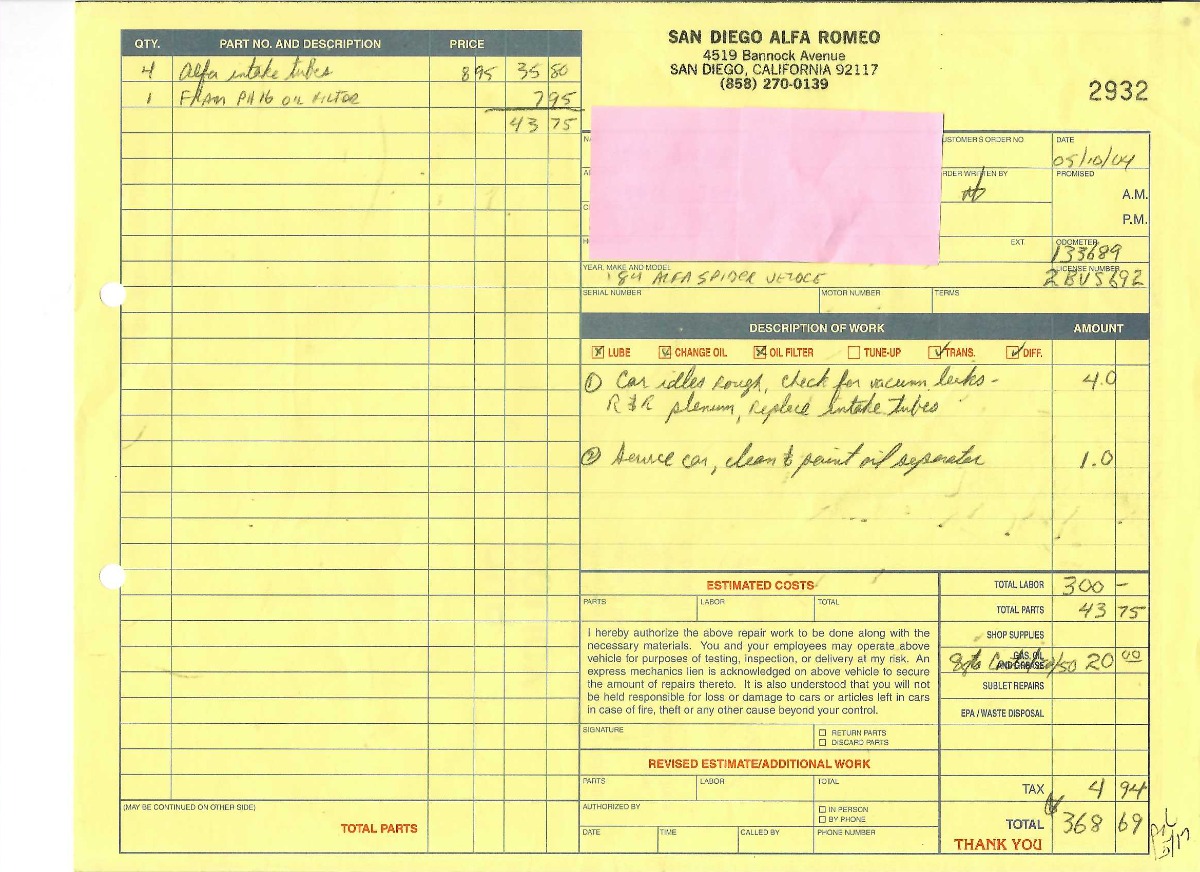 SAN DIEGO ALFA ROMEO
4519 Bannock Avenue
SAN DIEGO, CALIFORNIA 92117
(858) 270-0139
2932
QTY. PART NO. AND DESCRIPTION PRICE
4 Alfa intake tubes 8 95 35 80
1 FRAM PH16 OIL FILTER 7 95
43 75
CUSTOMER'S ORDER NO. DATE
05/10/04
ORDER WRITTEN BY PROMISED
A.M.
P.M.
EXT. ODOMETER
133689
YEAR, MAKE AND MODEL LICENSE NUMBER
'84 ALFA SPIDER VELOCE 2BUS692
SERIAL NUMBER MOTOR NUMBER TERMS
DESCRIPTION OF WORK AMOUNT
LUBE CHANGE OIL OIL FILTER TUNE-UP TRANS. DIFF.
① Car idles rough, check for vacumn leaks - 4.0
R & R plenum, replace intake tubes
② Service car, clean & paint oil separator 1.0
ESTIMATED COSTS
PARTS LABOR TOTAL
I hereby authorize the above repair work to be done along with the
necessary materials. You and your employees may operate above
vehicle for purposes of testing, inspection, or delivery at my risk. An
express mechanics lien is acknowledged on above vehicle to secure
the amount of repairs thereto. It is also understood that you will not
be held responsible for loss or damage to cars or articles left in cars
in case of fire, theft or any other cause beyond your control.
SIGNATURE
RETURN PARTS
DISCARD PARTS
TOTAL LABOR 300 -
TOTAL PARTS 43 75
SHOP SUPPLIES
GAS, OIL
AND GREASE 20 00
SUBLET REPAIRS
EPA / WASTE DISPOSAL
REVISED ESTIMATE/ADDITIONAL WORK
PARTS LABOR TOTAL
AUTHORIZED BY
IN PERSON
BY PHONE
DATE TIME CALLED BY PHONE NUMBER
TAX 4 94
TOTAL 368 69
THANK YOU
Pd
5/17
(MAY BE CONTINUED ON OTHER SIDE)
TOTAL PARTS